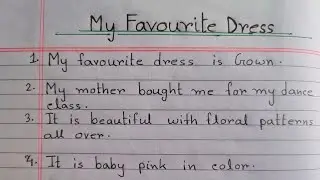 My Favourite Dress
1. My favourite dress is Gown.
2. My mother bought me for my dance
class.
3. It is beautiful with floral patterns
all over.
4. It is baby pink in color.